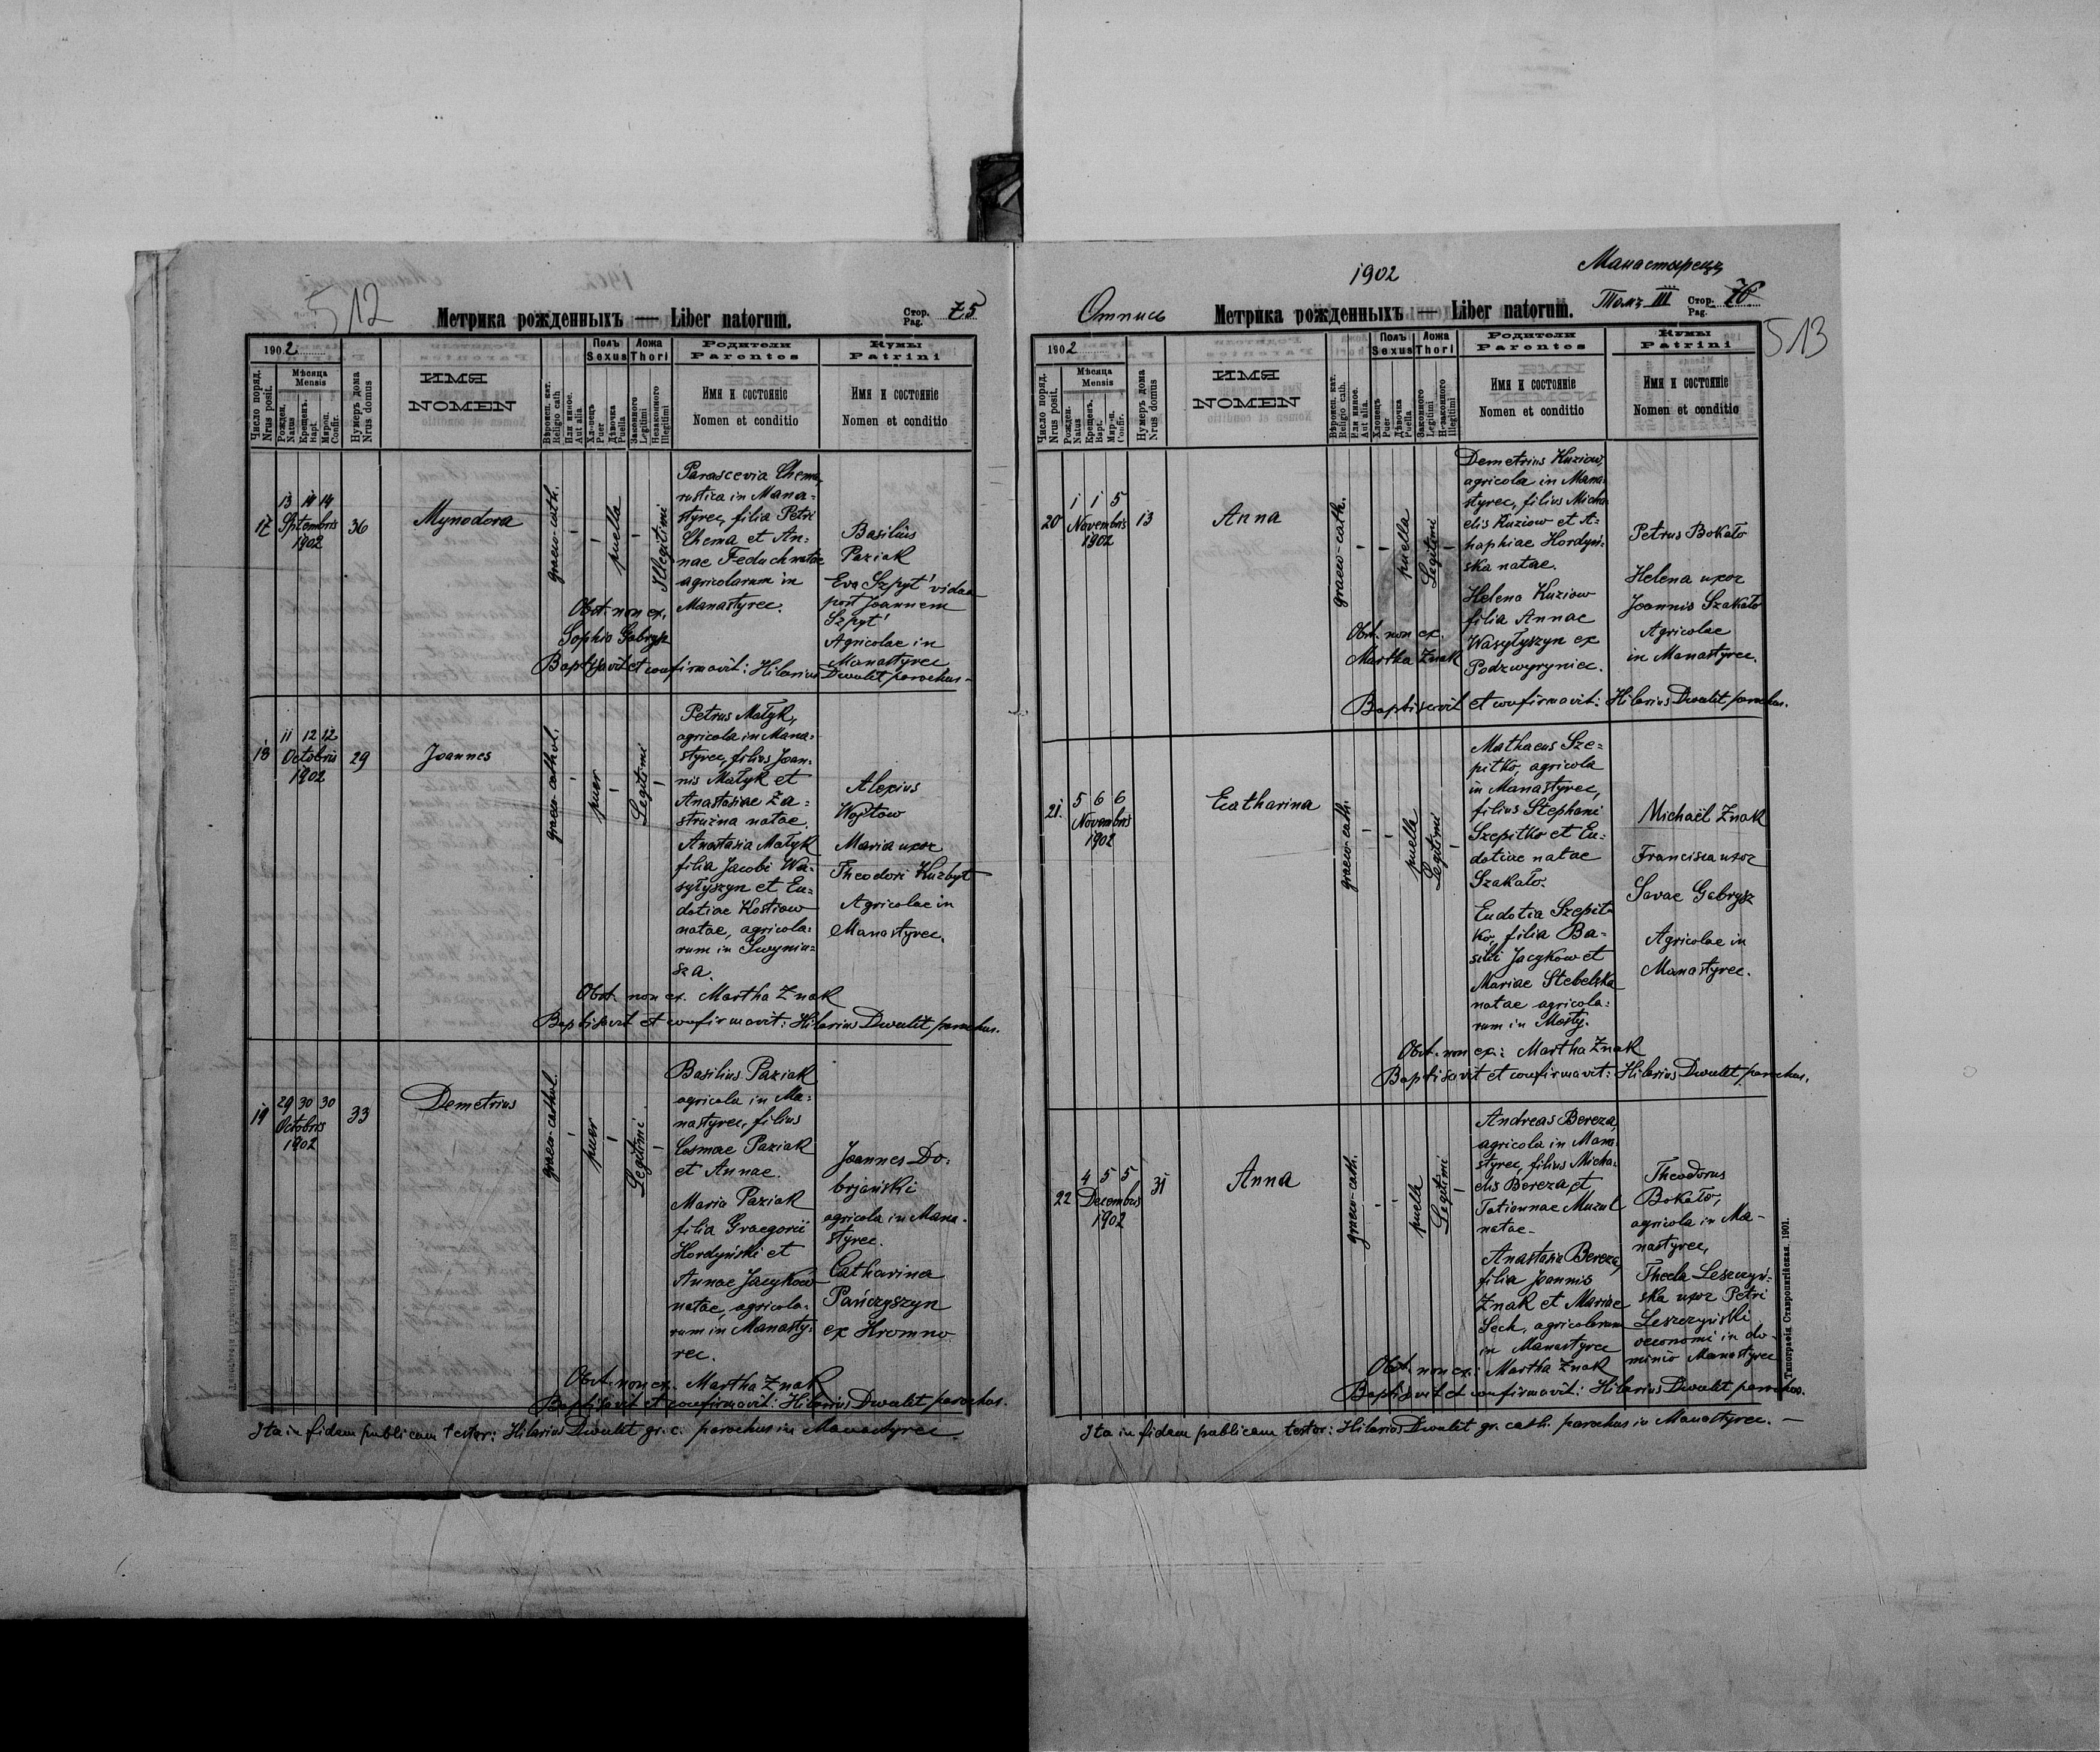 512
Метрика рожденныхъ — Liber natorum.
Стор. Pag. 75
1902
Число поряд. Nrus posit.
Мѣсяца Mensis
Рожден. Natus
Крещенъ. Bapt.
Мѵроп. Confir.
Нумеръ дома Nrus domus
ИМЯ
NOMEN
Вѣроисп. кат. Religio cath.
Или иное. Aut alia.
Полъ
Sexus
Хлопецъ Puer
Дѣвочка Puella
Ложа
Thori
Законного Legitimi
Незаконного Illegitimi
Родители
Parentes
Имя и состояніе
Nomen et conditio
Кумы
Patrini
Имя и состояніе
Nomen et conditio
17
13 14 14
Septembris
1902
36
Mynodora
graeco-cath.
puella
Illegitimi
Parascevia Chema,
rustica in Mana=
styrec, filia Petri
Chema et An=
nae Feduch natae
agricolarum in
Manastyrec.
Basilius
Paziak
Eva Szpyt' vidua
post Joannem
Szpyt'
Agricolae in
Manastyrec
Obst. non ex.
Sophia Gabrysz
Baptisavit et confirmavit: Hilarius Dwulit parochus.
18
11 12 12
Octobris
1902
29
Joannes
graeco-cathol.
puer
Legitimi
Petrus Małyk,
agricola in Mana=
styrec, filius Joan=
nis Małyk et
Anastasiae Za=
struzna natae.
Anastasia Małyk
filia Jacobi Wa=
syłyszyn et Eu=
dotiae Kostiow
natae, agricola=
rum in Swynia=
sza.
Alexius
Wojtow
Maria uxor
Theodori Kuzbyt
Agricolae in
Manastyrec.
Obst. non ex. Martha Znak
Baptisavit et confirmavit: Hilarius Dwulit parochus.
19
29 30 30
Octobris
1902
33
Demetrius
graeco-cathol.
puer
Legitimi
Basilius Paziak
agricola in Ma=
nastyrec, filius
Cosmae Paziak
et Annae.
Maria Paziak
filia Graegorii
Hordyński et
Annae Jacykow
natae, agricola=
rum in Manasty=
rec.
Joannes Do=
brjański
agricola in Mana=
styrec.
Catharina
Pańczyszyn
ex Hromno
Obst. non ex. Martha Znak
Baptisavit et confirmavit: Hilarius Dwulit parochus.
Ita in fidem publicam testor: Hilarius Dwulit gr. c. parochus in Manastyrec
1902
Манастырецъ
Отпись
Метрика рожденныхъ — Liber natorum.
Томъ III Стор. Pag. 76
513
1902
Число поряд. Nrus posit.
Мѣсяца Mensis
Рожден. Natus
Крещенъ. Bapt.
Мѵроп. Confir.
Нумеръ дома Nrus domus
ИМЯ
NOMEN
Вѣроисп. кат. Religio cath.
Или иное. Aut alia.
Полъ
Sexus
Хлопецъ Puer
Дѣвочка Puella
Ложа
Thori
Законного Legitimi
Незаконного Illegitimi
Родители
Parentes
Имя и состояніе
Nomen et conditio
Кумы
Patrini
Имя и состояніе
Nomen et conditio
20
1 1 5
Novembris
1902
13
Anna
graeco-cath.
puella
Legitimi
Demetrius Kuziow,
agricola in Mana=
styrec, filius Micha
elis Kuziow et A=
haphiae Hordyń=
ska natae.
Helena Kuziow
filia Annae
Wasyłyszyn ex
Podzwyryniec.
Petrus Bokało
Helena uxor
Joannis Szakało
Agricolae
in Manastyrec.
Obst. non ex.
Martha Znak
Baptisavit et confirmavit: Hilarius Dwulit parochus.
21.
5 6 6
Novembris
1902
Ecatharina
graeco-cath.
puella
Legitimi
Mathaeus Sze=
pitko, agricola
in Manastyrec,
filius Stephani
Szepitko et Eu=
dotiae natae
Szakało.
Eudotia Szepit=
ko, filia Ba=
silii Jacykow et
Mariae Stebelska
natae agricola=
rum in Mosty.
Michaël Znak
Francisca uxor
Savae Gabrysz
Agricolae in
Manastyrec.
Obst. non ex.: Martha Znak
Baptisavit et confirmavit: Hilarius Dwulit parochus.
22
4 5 5
Decembris
1902
31
Anna
graeco-cath.
puella
Legitimi
Andreas Bereza,
agricola in Mana=
styrec, filius Micha=
elis Bereza, et
Tatiannae Muzul
natae.
Anastasia Bereza,
filia Joannis
Znak et Mariae
Sech, agricolarum
in Manastyrec
Theodorus
Bokało,
agricola in Ma-
nastyrec,
Thecla Leszczyń=
ska uxor Petri
Leszczyński
oeconomi in do-
minio Manastyrec
Obst. non ex: Martha Znak
Baptisavit et confirmavit: Hilarius Dwulit parochus.
Ita in fidem publicam testor: Hilarius Dwulit gr. cath. parochus in Manastyrec. —
Типографія Ставропигійская. 1901.